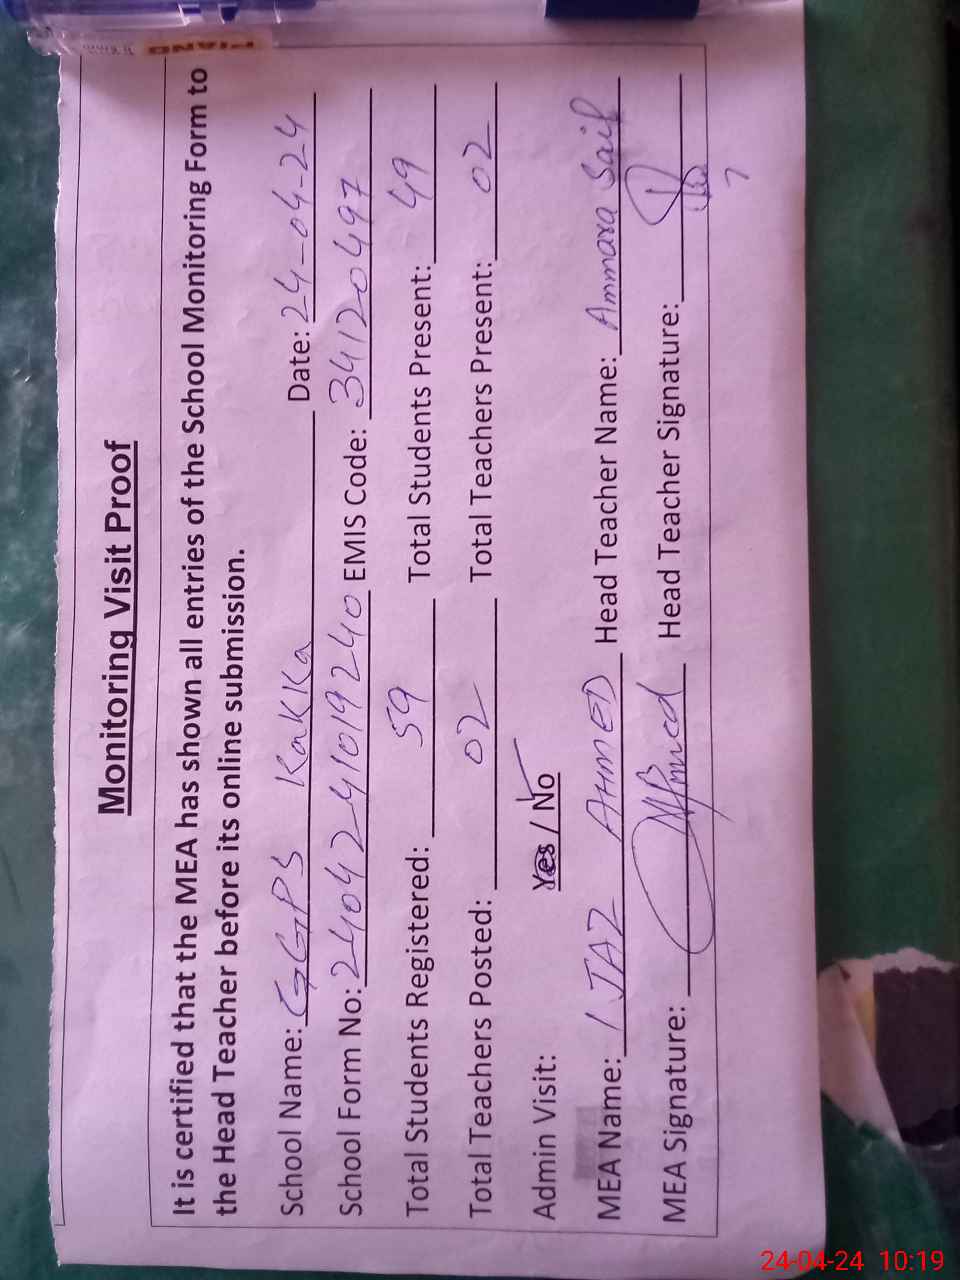 PIANO
Monitoring Visit Proof
It is certified that the MEA has shown all entries of the School Monitoring Form to
the Head Teacher before its online submission.
School Name: GGPS KaKKa Date: 24-04-24
School Form No: 2404241019240 EMIS Code: 34120497
Total Students Registered: 59 Total Students Present: 49
Total Teachers Posted: 02 Total Teachers Present: 02
Admin Visit: Yes / No
MEA Name: IJAZ AHMED Head Teacher Name: Ammara Saif
MEA Signature: Ahmed Head Teacher Signature:
24-04-24 10:19